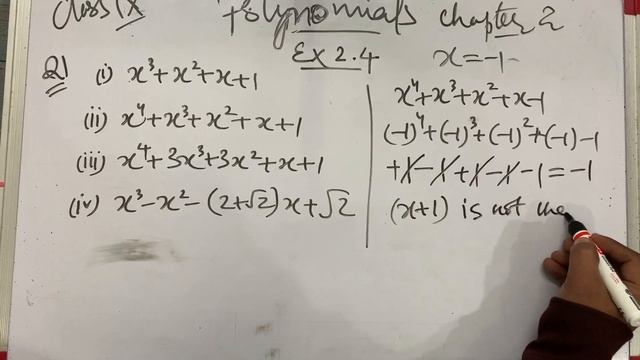 Class IX Polynomials chapter 2
Ex 2.4
x=-1
Q1 (i) x³+x²+x+1
(ii) x⁴+x³+x²+x+1
(iii) x⁴+3x³+3x²+x+1
(iv) x³-x²-(2+√2)x+√2
x⁴+x³+x²+x-1
(-1)⁴+(-1)³+(-1)²+(-1)-1
+1-1+1-1-1=-1
(x+1) is not the